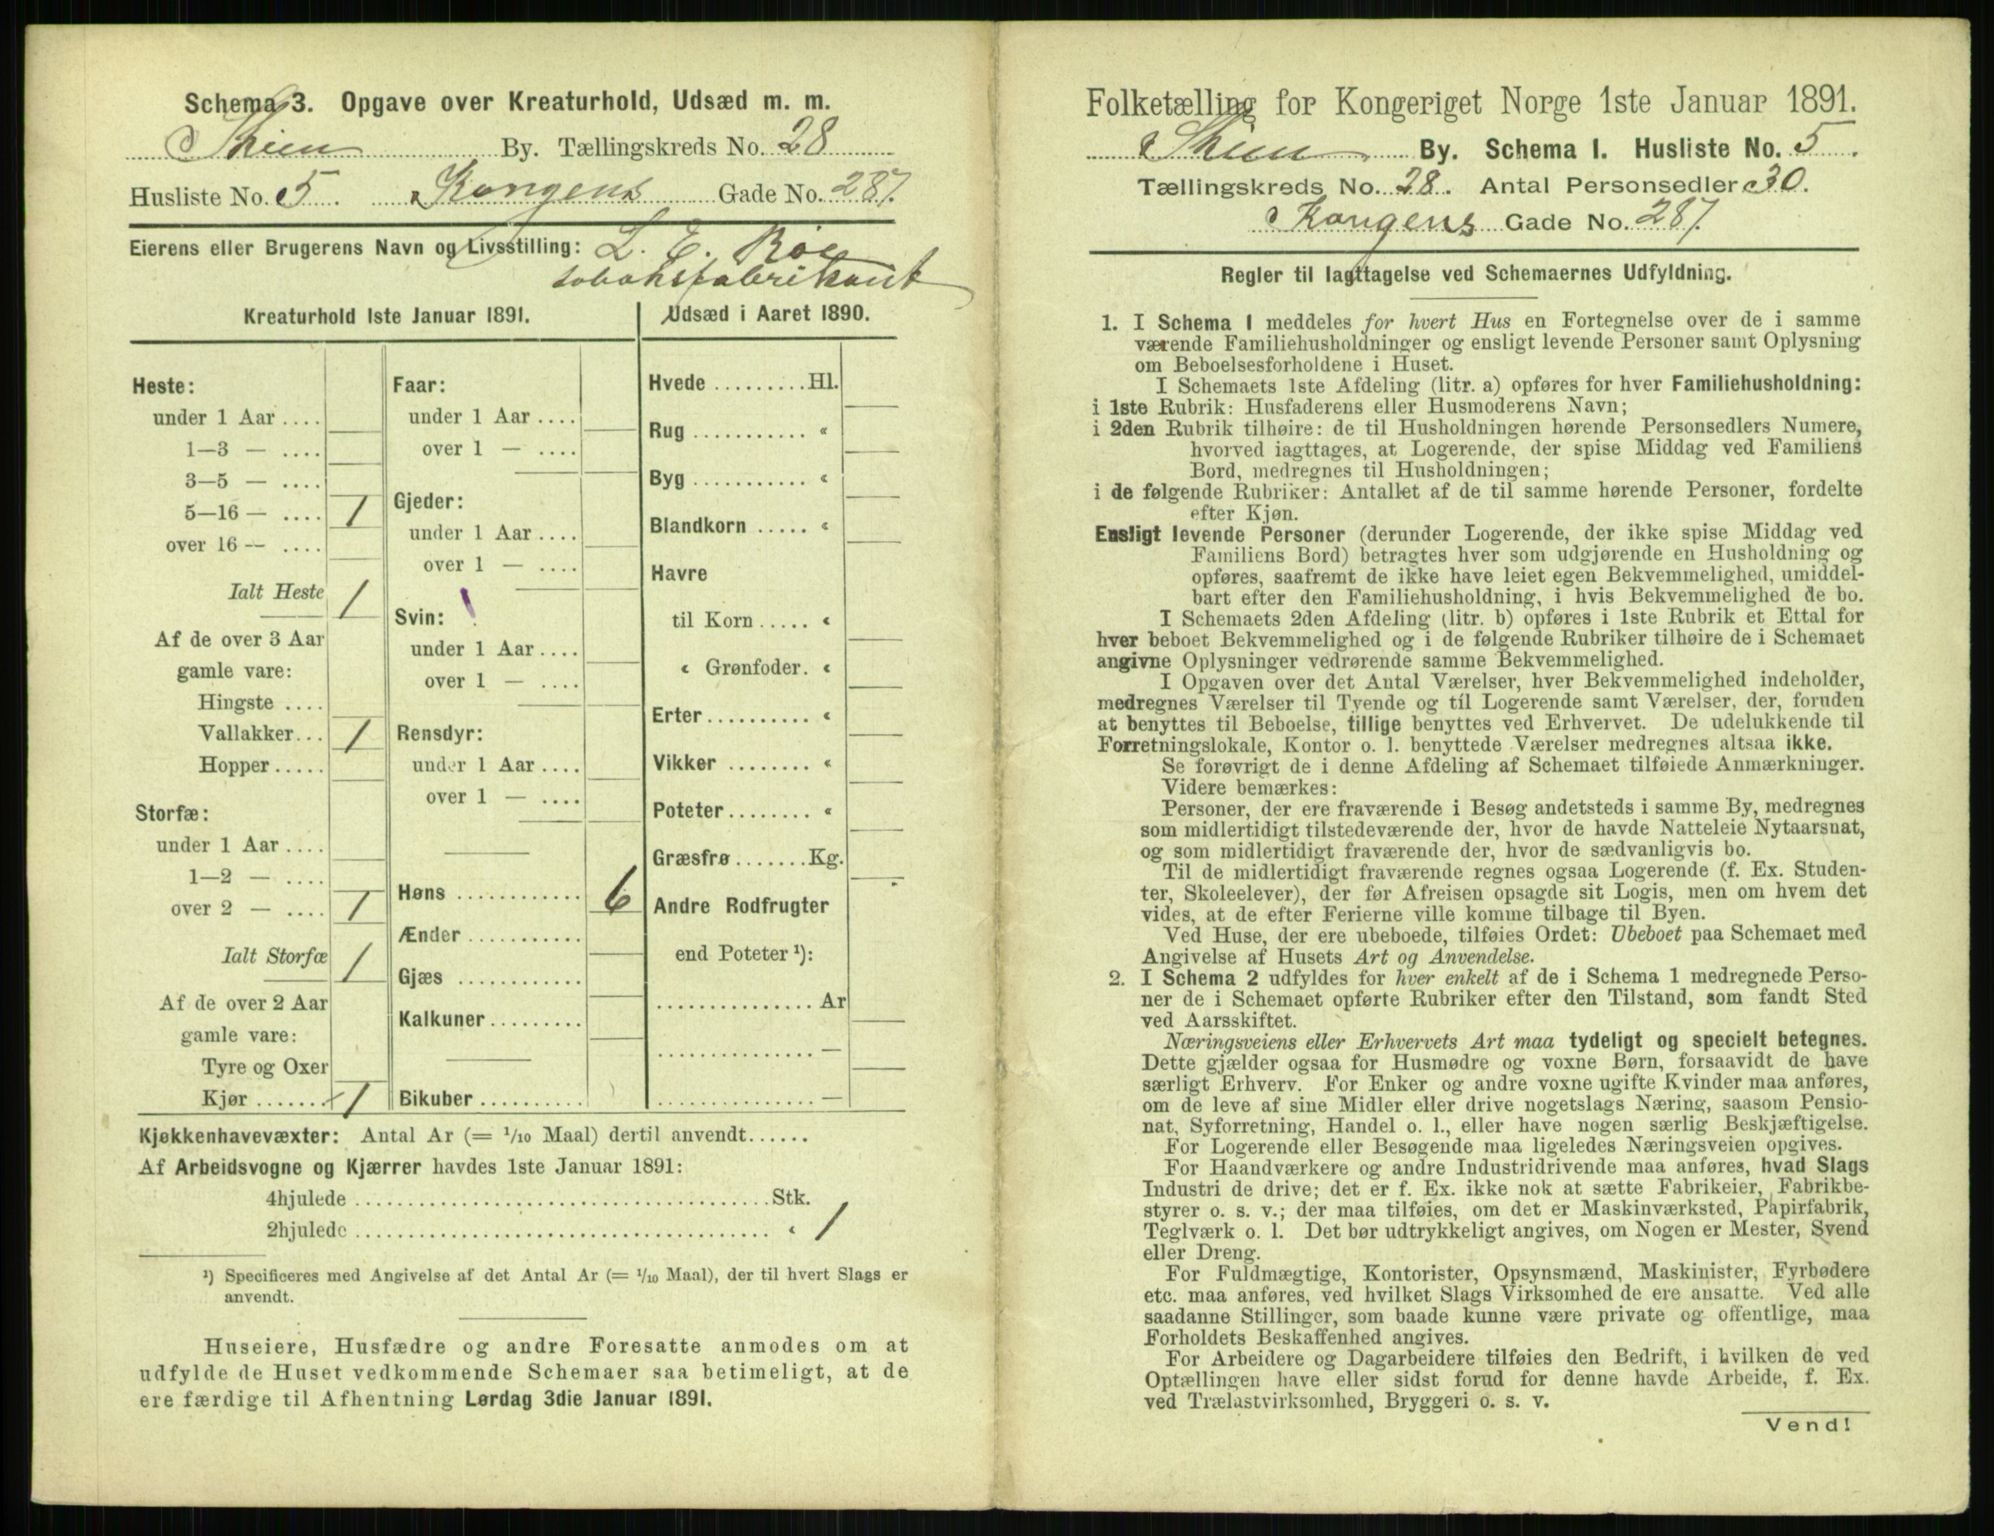 Schema 3. Opgave over Kreaturhold, Udsæd m. m.
Skien By. Tællingskreds No. 28
Husliste No. 5. Kongens Gade No. 287.
Eierens eller Brugerens Navn og Livsstilling: L. E. Röe
tobaksfabrikant
Kreaturhold 1ste Januar 1891.
Heste:
under 1 Aar ....
1—3 — ....
3—5 — ....
5—16 — .... 1
over 16 — ....
Ialt Heste 1
Af de over 3 Aar
gamle vare:
Hingste ....
Vallakker... 1
Hopper .....
Storfæ:
under 1 Aar ....
1—2 — ....
over 2 — .... 1
Ialt Storfæ 1
Af de over 2 Aar
gamle vare:
Tyre og Oxer
Kjør ....... 1
Faar:
under 1 Aar ....
over 1 — ....
Gjeder:
under 1 Aar ....
over 1 — ....
Svin:
under 1 Aar ....
over 1 — ....
Rensdyr:
under 1 Aar ....
over 1 — ....
Høns ........... 6
Ænder ...........
Gjæs ............
Kalkuner .........
Bikuber ..........
Udsæd i Aaret 1890.
Hvede ......... Hl.
Rug ........... «
Byg ........... «
Blandkorn ..... «
Havre
til Korn ..... «
« Grønfoder. «
Erter .......... «
Vikker ........ «
Poteter ........ «
Græsfrø ....... Kg.
Andre Rodfrugter
end Poteter ¹):
............... Ar
............... —
............... —
Kjøkkenhavevæxter: Antal Ar (= 1/10 Maal) dertil anvendt......
Af Arbeidsvogne og Kjærrer havdes 1ste Januar 1891:
4hjulede ........................................ Stk.
2hjulede ........................................ « 1
¹) Specificeres med Angivelse af det Antal Ar (= 1/10 Maal), der til hvert Slags er
anvendt.
Huseiere, Husfædre og andre Foresatte anmodes om at
udfylde de Huset vedkommende Schemaer saa betimeligt, at de
ere færdige til Afhentning Lørdag 3die Januar 1891.
Folketælling for Kongeriget Norge 1ste Januar 1891.
Skien By. Schema I. Husliste No. 5.
Tællingskreds No. 28. Antal Personsedler 30.
Kongens Gade No. 287.
Regler til Iagttagelse ved Schemaernes Udfyldning.
1. I Schema 1 meddeles for hvert Hus en Fortegnelse over de i samme
værende Familiehusholdninger og ensligt levende Personer samt Oplysning
om Beboelsesforholdene i Huset.
I Schemaets 1ste Afdeling (litr. a) opføres for hver Familiehusholdning:
i 1ste Rubrik: Husfaderens eller Husmoderens Navn;
i 2den Rubrik tilhøire: de til Husholdningen hørende Personsedlers Numere,
hvorved iagttages, at Logerende, der spise Middag ved Familiens
Bord, medregnes til Husholdningen;
i de følgende Rubriker: Antallet af de til samme hørende Personer, fordelte
efter Kjøn.
Ensligt levende Personer (derunder Logerende, der ikke spise Middag ved
Familiens Bord) betragtes hver som udgjørende en Husholdning og
opføres, saafremt de ikke have leiet egen Bekvemmelighed, umiddel-
bart efter den Familiehusholdning, i hvis Bekvemmelighed de bo.
I Schemaets 2den Afdeling (litr. b) opføres i 1ste Rubrik et Ettal for
hver beboet Bekvemmelighed og i de følgende Rubriker tilhøire de i Schemaet
angivne Oplysninger vedrørende samme Bekvemmelighed.
I Opgaven over det Antal Værelser, hver Bekvemmelighed indeholder,
medregnes Værelser til Tyende og til Logerende samt Værelser, der, foruden
at benyttes til Beboelse, tillige benyttes ved Erhvervet. De udelukkende til
Forretningslokale, Kontor o. l. benyttede Værelser medregnes altsaa ikke.
Se forøvrigt de i denne Afdeling af Schemaet tilføiede Anmærkninger.
Videre bemærkes:
Personer, der ere fraværende i Besøg andetsteds i samme By, medregnes
som midlertidigt tilstedeværende der, hvor de havde Natteleie Nytaarsnat,
og som midlertidigt fraværende der, hvor de sædvanligvis bo.
Til de midlertidigt fraværende regnes ogsaa Logerende (f. Ex. Studen-
ter, Skoleelever), der før Afreisen opsagde sit Logis, men om hvem det
vides, at de efter Ferierne ville komme tilbage til Byen.
Ved Huse, der ere ubeboede, tilføies Ordet: Ubeboet paa Schemaet med
Angivelse af Husets Art og Anvendelse.
2. I Schema 2 udfyldes for hver enkelt af de i Schema 1 medregnede Perso-
ner de i Schemaet opførte Rubriker efter den Tilstand, som fandt Sted
ved Aarsskiftet.
Næringsveiens eller Erhvervets Art maa tydeligt og specielt betegnes.
Dette gjælder ogsaa for Husmødre og voxne Børn, forsaavidt de have
særligt Erhverv. For Enker og andre voxne ugifte Kvinder maa anføres,
om de leve af sine Midler eller drive nogetslags Næring, saasom Pensio-
nat, Syforretning, Handel o. l., eller have nogen særlig Beskjæftigelse.
For Logerende eller Besøgende maa ligeledes Næringsveien opgives.
For Haandværkere og andre Industridrivende maa anføres, hvad Slags
Industri de drive; det er f. Ex. ikke nok at sætte Fabrikeier, Fabrikbe-
styrer o. s. v.; der maa tilføies, om det er Maskinværksted, Papirfabrik,
Teglværk o. l. Det bør udtrykkeligt angives, om Nogen er Mester, Svend
eller Dreng.
For Fuldmægtige, Kontorister, Opsynsmænd, Maskinister, Fyrbødere
etc. maa anføres, ved hvilket Slags Virksomhed de ere ansatte. Ved alle
saadanne Stillinger, som baade kunne være private og offentlige, maa
Forholdets Beskaffenhed angives.
For Arbeidere og Dagarbeidere tilføies den Bedrift, i hvilken de ved
Optællingen have eller sidst forud for denne havde Arbeide, f. Ex.
ved Trælastvirksomhed, Bryggeri o. s. v.
Vend!